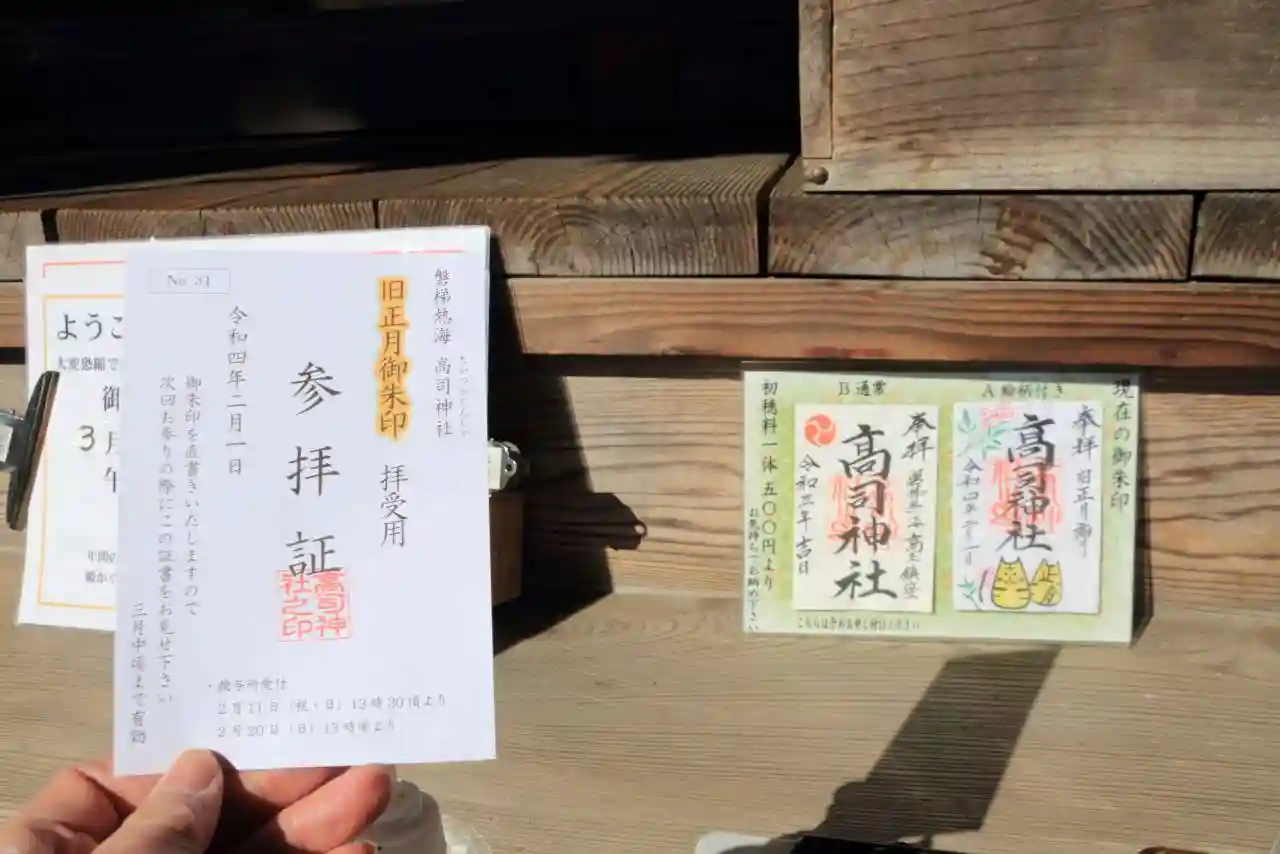 No 31
磐梯熱海 高司神社
たかつかさじんじゃ
旧正月御朱印 拝受用
参拝証
高司神社之印
令和四年二月一日
御朱印を直書きいたしますので
次回お参りの際にこの証書をお見せ下さい
三月中頃まで有効
・授与所受付
2月11日（祝・日）13時30頃より
2月20日（日）13時頃より
ようこ
大変恐縮で
御
3月
午
年間の
現在の御朱印
A絵柄付き
奉拝 旧正月御朱印
高司神社
令和四年二月一日
B通常
奉拝
高司神社
令和三年吉日
初穂料 一体五〇〇円より
お気持ち お納め下さい